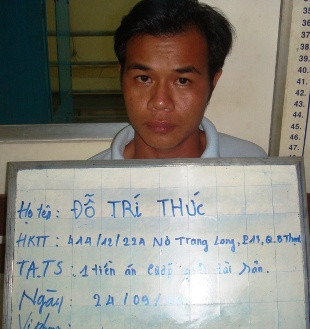 35
36
38.
39.
40.
42.
43.
44.
45.
46.
47.
Họ tên: ĐỖ TRÍ THỨC
HKTT: 414/12/22A Nơ Trang Long, P13, Q.BThạnh
TA.TS: 1 tiền án tài sản.
Ngày: 24/09/